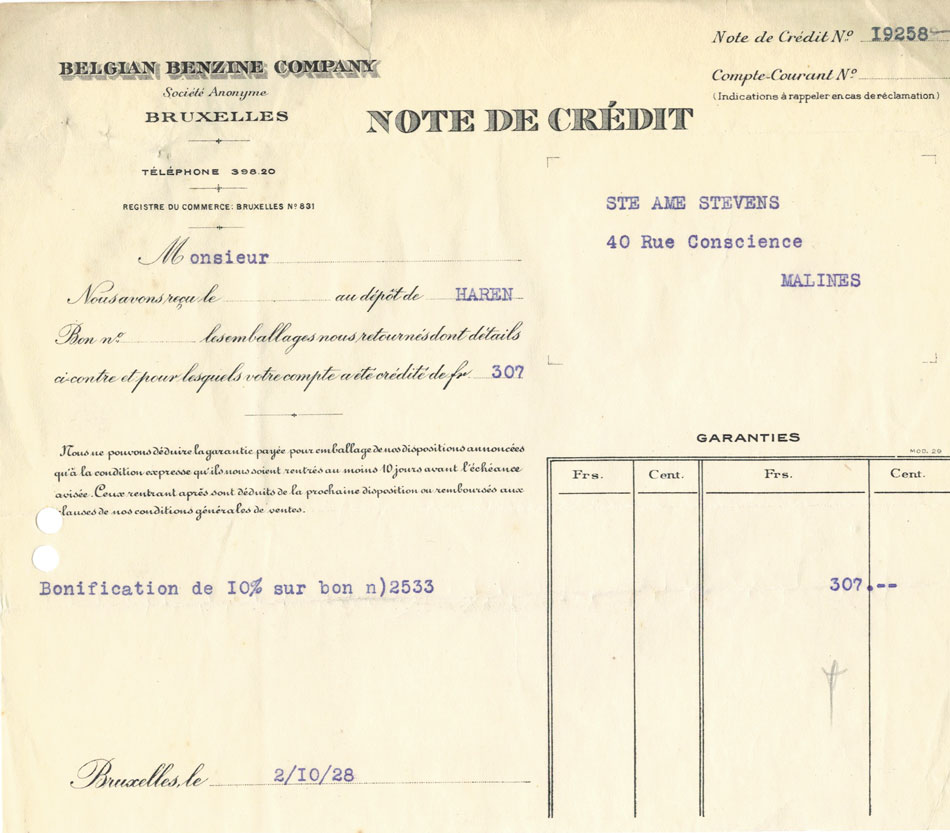 Note de Crédit Nº 19258
BELGIAN BENZINE COMPANY
Société Anonyme
BRUXELLES
Compte-Courant Nº
(Indications à rappeler en cas de réclamation)
NOTE DE CRÉDIT
TÉLÉPHONE 398.20
REGISTRE DU COMMERCE: BRUXELLES Nº 831
STE AME STEVENS
40 Rue Conscience
MALINES
Monsieur
Nous avons reçu le au dépôt de HAREN
Bon nº les emballages nous retournés dont détails
ci-contre et pour lesquels votre compte a été crédité de fr. 307
GARANTIES
MOD. 29
Nous ne pouvons déduire la garantie payée pour emballage de nos dispositions annoncées
qu'à la condition expresse qu'ils nous soient rentrés au moins 10 jours avant l'échéance
avisée. Ceux rentrant après sont déduits de la prochaine disposition ou remboursés aux
clauses de nos conditions générales de ventes.
Frs. Cent. Frs. Cent.
Bonification de I0% sur bon n)2533 307.--
Bruxelles, le 2/I0/28